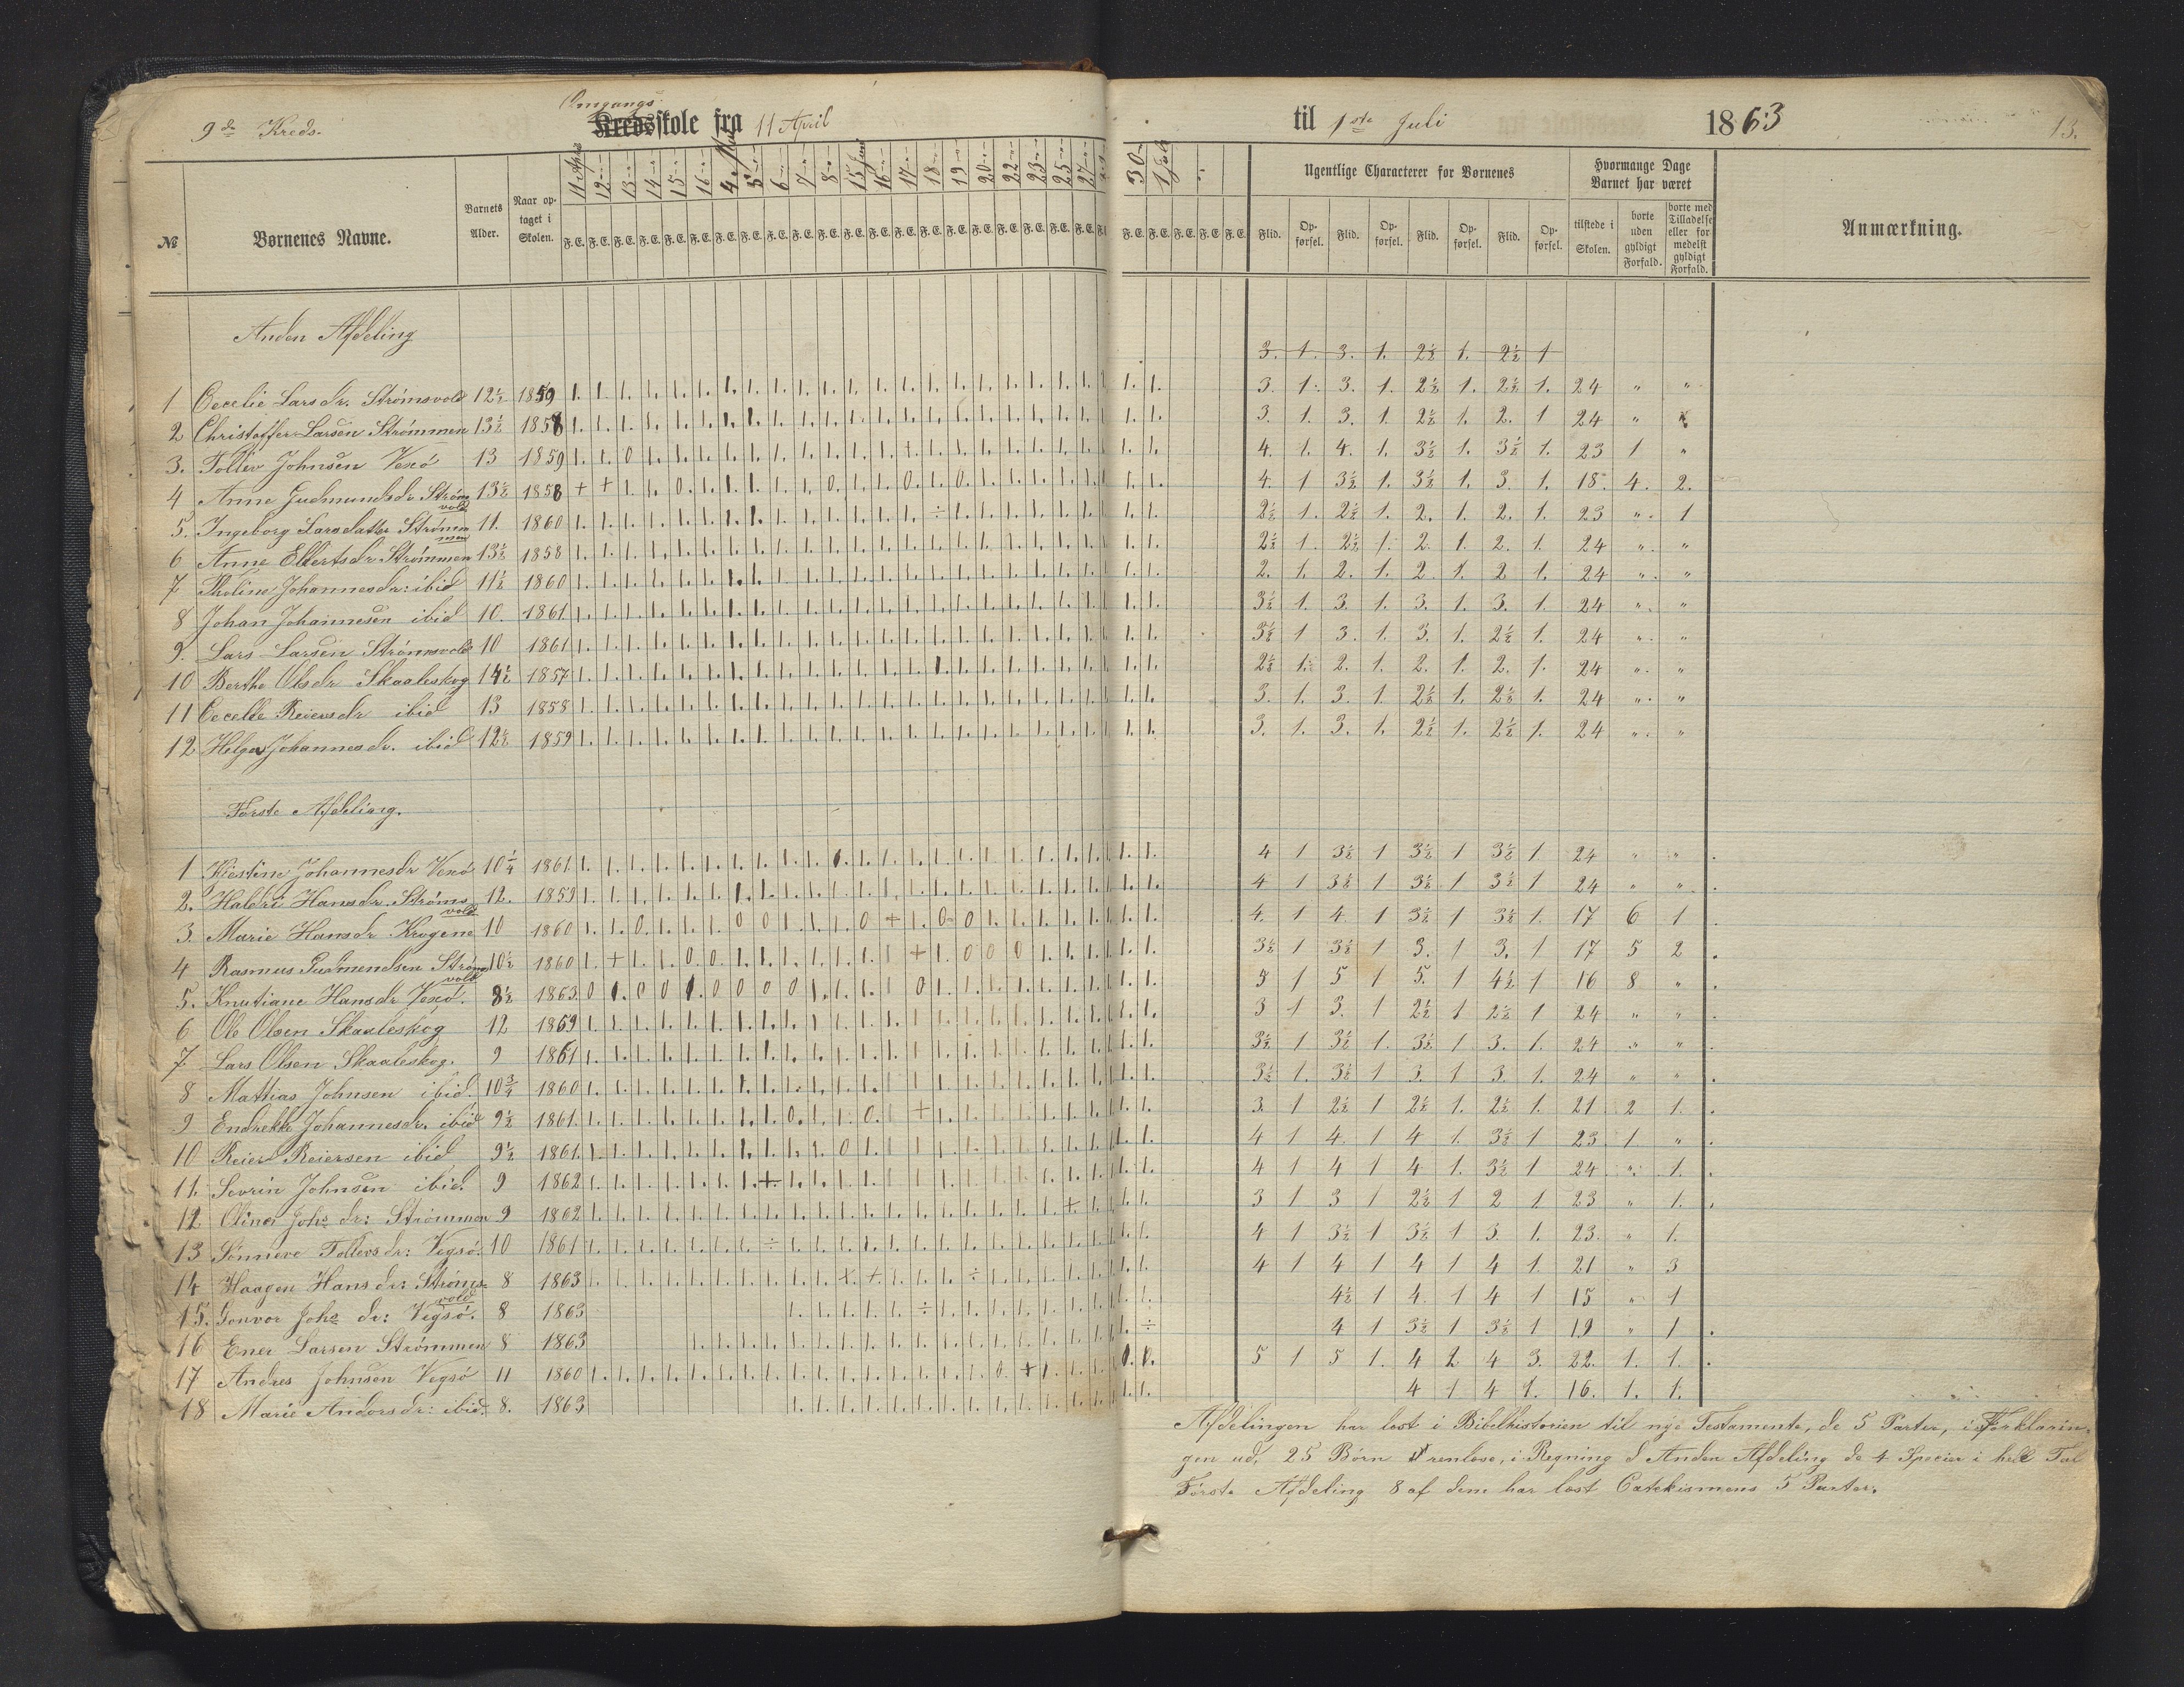 9de Kreds.
Omgangs
Kredsskole fra 11 April til 1ste Juli 1863
13.
№ Børnenes Navne. Barnets Alder. Naar optaget i Skolen. 11 April 12 13 14 15 16 4 5 6 7 8 15 Juni 16 17 18 19 20 22 23 25 27 30 1 Juli
F. E. F. E. F. E. F. E. F. E. F. E. F. E. F. E. F. E. F. E. F. E. F. E. F. E. F. E. F. E. F. E. F. E. F. E. F. E. F. E. F. E.
Ugentlige Characterer for Børnenes
Flid. Opførsel. Flid. Opførsel. Flid. Opførsel. Flid. Opførsel.
Hvormange Dage Barnet har været
tilstede i Skolen. borte uden gyldigt Forfald. borte med Tilladelse eller formedelst gyldigt Forfald.
Anmærkning.
Anden Afdeling
3. 1. 3. 1. 2½ 1. 2½ 1
1 Cecelie Larsdr. Strømsvold 12½ 1859 3. 1. 3. 1. 2½ 1. 2½ 1. 24 " "
2 Christoffer Larsen Strømmen 13½ 1858 3. 1. 3. 1 2½ 1. 2. 1 24 "
3. Tollev Johnsen Vexø 13 1859 4. 1. 4. 1. 3½ 1. 3½ 1. 23 1 "
4 Anne Gudmundsdr. Strømsvold 13½ 1858 4. 1 3½ 1. 3½ 1. 3. 1. 18. 4. 2.
5. Ingeborg Larsdatter Strømmen 11. 1860 2½ 1. 2½ 1. 2. 1. 2. 1. 23 " 1
6 Anne Ellertsdr. Strømmen 13½ 1858 2½ 1. 2½ 1. 2. 1. 2. 1. 24 " "
7 Tholine Johannesdr: ibid 11½ 1860 2. 1. 2. 1. 2. 1. 2 1. 24 " "
8 Johan Johannesen ibid 10. 1861 3½ 1. 3. 1. 3. 1. 3. 1. 24 " "
9. Lars Larsen Strømsvold 10 1861 3½ 1 3. 1. 3. 1. 2½ 1. 24 " "
10 Berthe Olsdr Skaaleskog 14½ 1857 2½ 1. 2. 1. 2. 1. 2. 1. 24 " "
11 Cecelie Reiersdr ibid 13 1858 3. 1. 3. 1 2½ 1. 2½ 1. 24 " "
12 Helga Johannesdr. ibid 12½ 1859 3. 1. 3. 1. 2½ 1. 2½ 1. 24 " "
Første Afdeling.
1 Kiestine Johannesdr Vexø 10¼ 1861 4 1 3½ 1 3½ 1 3½ 1. 24 " "
2. Haldri Hansdr. Strømsvold 12. 1859 4 1 3½ 1 3½ 1 3½ 1 24 " "
3. Marie Hansdr Krogene 10 1860 4. 1 4. 1 3½ 1 3½ 1. 17 6 1
4 Rasmus Gudmendsen Strømsvold 10½ 1860 3½ 1 3½ 1 3. 1 3. 1 17 5 2
5. Knutiane Hansdr Vexø. 8½ 1863 5 1 5 1 5. 1 4½ 1 16 8 "
6 Ole Olsen Skaaleskog 12 1859 3 1 3. 1 2½ 1 2½ 1 24 " "
7 Lars Olsen Skaaleskog. 9 1861 3½ 1 3½ 1. 3½ 1 3. 1. 24 " "
8 Mattias Johnsen ibid. 10¾ 1860 3½ 1. 3½ 1 3. 1 3. 1. 24 " "
9 Endrekke Johannesdr. ibid 9½ 1861. 3. 1 2½ 1 2½ 1. 2½ 1. 21 2 1.
10 Reier Reiersen ibid 9½ 1861. 4 1 4. 1 4 1. 3½ 1 23 1 "
11. Sevrin Johnsen ibid. 9 1862 4 1 4 1 4 1. 3½ 1 24 " 1.
12 Oline Johs dr: Strømmen 9 1862 3 1 3 1 2½ 1 2 1. 23 " 1.
13 Sønneve Tollevsdr: Vegsø. 10 1861 4 1 3½ 1 3½ 1 3. 1. 23. " 1.
14 Haagen Hans dr: Strømsvold 8 1863 4 1 4 1 4 1 4 1. 21 " 3
15. Gonvor Johs dr: Vegsø. 8 1863 4½ 1 4. 1 4 1 15 " 1
16 Ener Larsen Strømmen 8 1863 4 1 3½ 1 3½ 1 19 " 1
17 Andres Johnsen Vegsø 11 1860 5 1 5 1. 4 2 4 3. 22. 1. 1.
18 Marie Andorsdr: ibid. 8. 1863 4 1 4 1. 16. 1. 1.
Afdelingen har læst i Bibelhistorien til nye Testamente, de 5 Parter, i Forklaringen ud, 25 Børn renlæse, i Regning Anden Afdeling de 4 Specier i hele Tal
Første Afdeling 8 af dem har læst Catekismens 5 Parter.